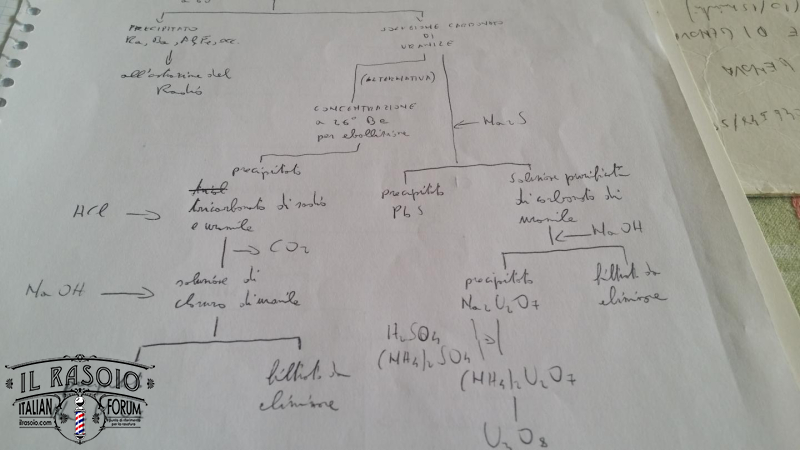 PRECIPITATO
Ra, Ba, Al, Fe, ecc.
all'estrazione del
Radio
SOLUZIONE CARBONATO
DI
URANILE
(ALTERNATIVA)
CONCENTRAZIONE
a 26° Be
per ebollizione
Na2S
precipitato
tricarbonato di sodio
e uranile
HCl
CO2
NaOH
soluzione di
cloruro di uranile
filtrato da
eliminare
precipitato
PbS
soluzione purificata
di carbonato di
uranile
NaOH
precipitato
Na2U2O7
filtrato da
eliminare
H2SO4
(NH4)2SO4
(NH4)2U2O7
U3O8
E DI GENOVA
GENOVA
IL RASOIO
ITALIAN FORUM
ilrasoio.com